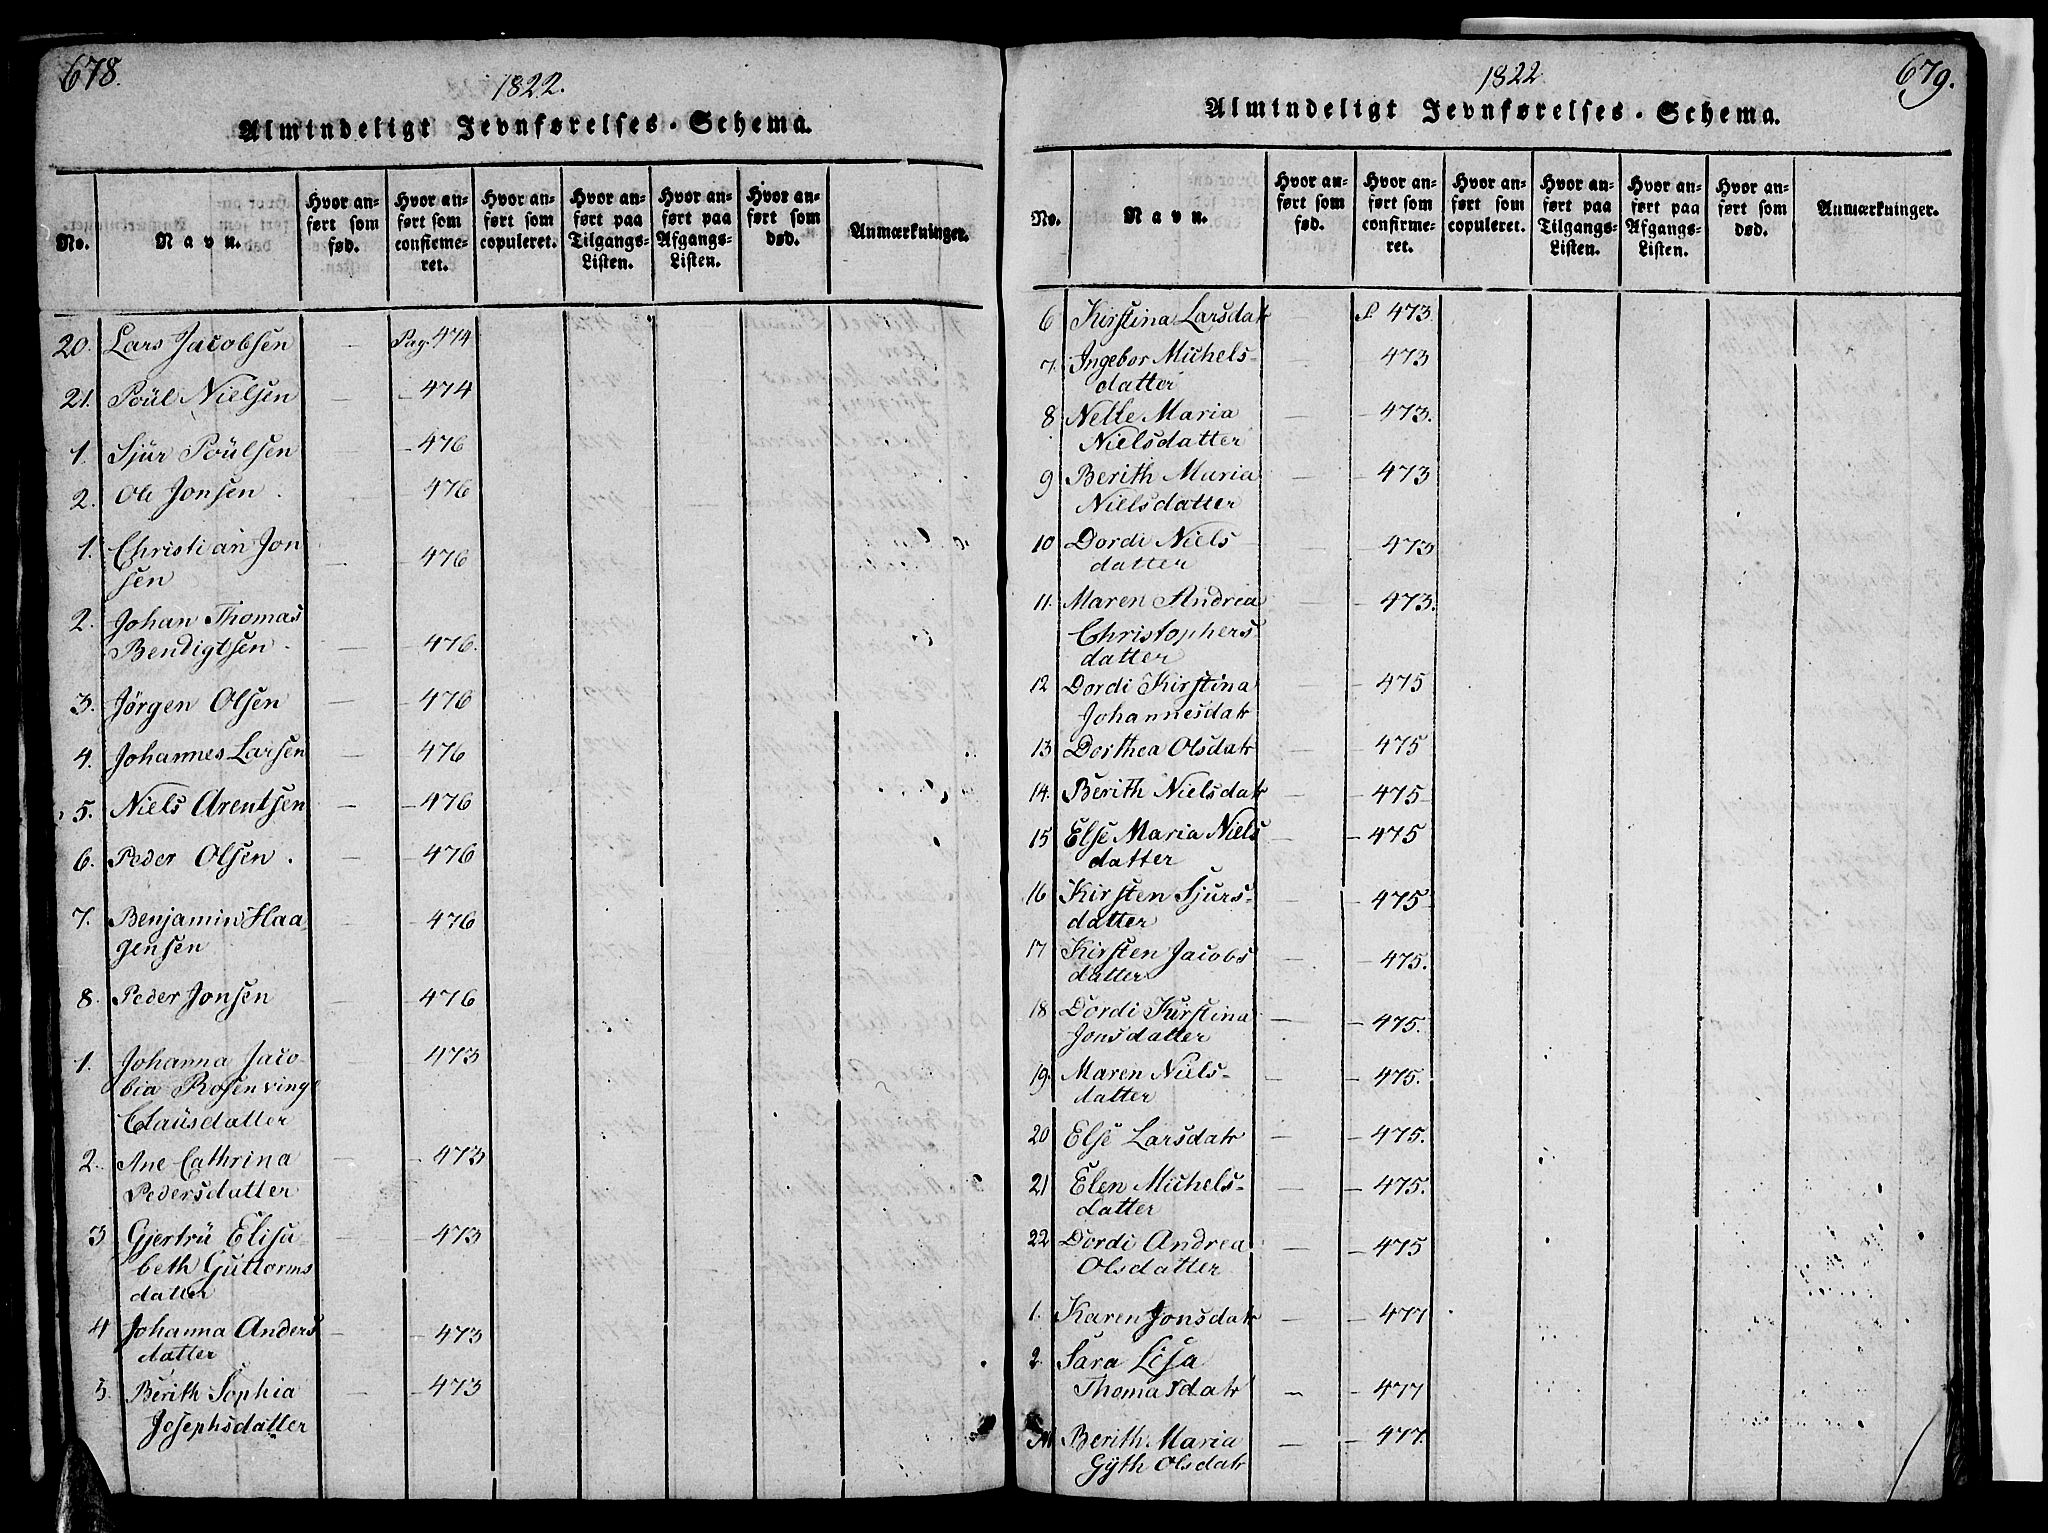 678.
1822.
Almindeligt Jevnførelses-Schema.
No.
Navn.
Hvor an-
ført som
fød.
Hvor an-
ført som
confirme-
ret.
Hvor an-
ført som
copuleret.
Hvor an-
ført paa
Tilgangs-
Listen.
Hvor an-
ført paa
Afgangs-
Listen.
Hvor an-
ført som
død.
Anmærkninger.
20. Lars Jacobsen – Pag. 474
21. Poül Nielsen – – 474
1. Sjur Poülsen – 476
2. Ole Jonsen . – 476
1. Christian Jon
sen – – 476
2. Johan Thomas
Bendigtsen . – – 476.
3. Jörgen Olsen – – 476
4. Johannes Larsen – 476
5. Niels Arentsen – – 476
6. Peder Olsen . – – 476
7. Benjamin Haa-
gensen – – 476
8. Peder Jonsen – – 476
1. Johanna Jaco
bia Rosenvinge
Claüsdatter – – 473
2. Ane Cathrina
Pedersdatter – – 473
3 Gjertrü Elisa
beth Güttorms
datter – – 473
4 Johanna Anders
datter – – 473
5. Berith Sophia
Josephsdatter – – 473
679.
1822
Almindeligt Jevnførelses-Schema.
No.
Navn.
Hvor an-
ført som
fød.
Hvor an-
ført som
confirme-
ret.
Hvor an-
ført som
copuleret.
Hvor an-
ført paa
Tilgangs-
Listen.
Hvor an-
ført paa
Afgangs-
Listen.
Hvor an-
ført som
død.
Anmærkninger.
6 Kirstina Larsdatr – P 473.
7. Ingebor Michels-
datter – 473
8 Nelle Maria
Nielsdatter – – 473.
9 Berith Maria
Nielsdatter – – 473
10 Dordi Niels
datter – – 473
11. Maren Andrea
Christophers
datter – – 473.
12 Dordi Kirstina
Johannesdatr – – 475
13 Dorthea Olsdatr – – 475
14. Berith Nielsdatr – – 475
15 Else Maria Niels
datter – – 475
16 Kirsten Sjurs-
datter – – 475
17 Kirsten Jacobs
datter – – 475.
18 Dordi Kirstina
Jonsdatter – – 475.
19. Maren Niels-
datter – – 475.
20 Else Larsdatr – – 475.
21 Elen Michels-
datter – – 475.
22 Dordi Andrea
Olsdatter – – 475
1. Karen Jonsdatr – – 477
2. Sara Lisa
Thomasdatr – – 477
Berith Maria
Gÿth Olsdatr – – 477.